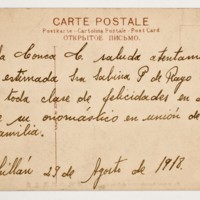 CARTE POSTALE
Postkarte - Cartolina Postale - Post Card
ОТКРЫТОЕ ПИСЬМО.
la Conca C. saluda atentam
estimada Sra Sabina P de Rayo
toda clase de felicidades en
su onomástico en unión de
familia.
hillán 28 de Agosto de 1918.